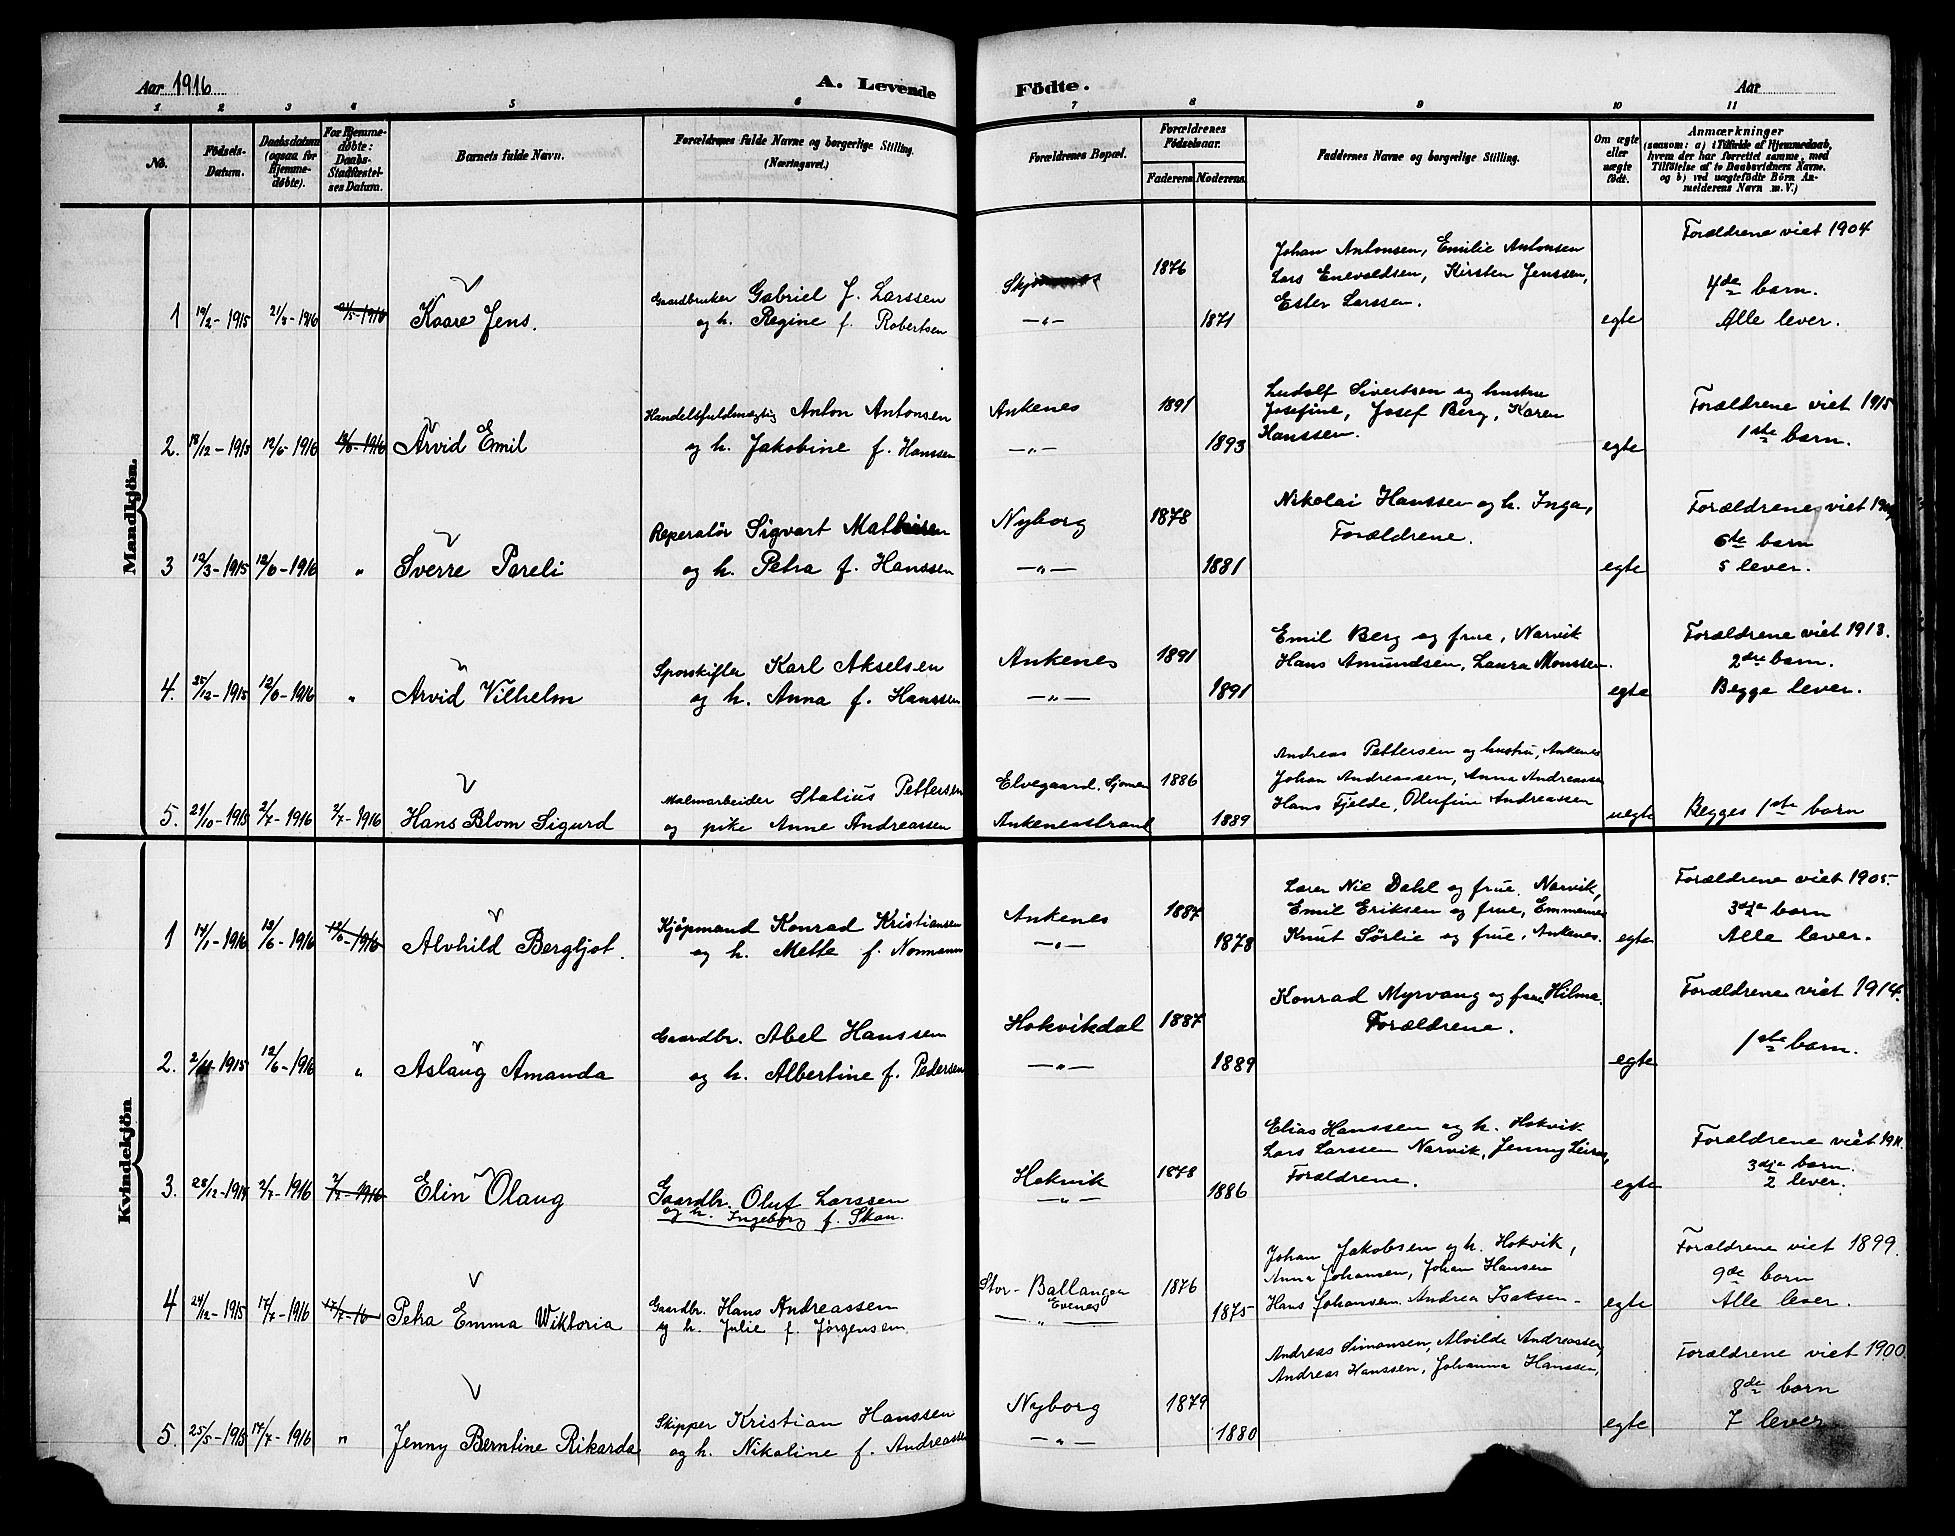 Aar 1916
A. Levende
Födte.
Aar
1 2 3 4 5 6 7 8 9 10 11
No.
Födsels-
Datum.
Daabsdatum
(ogsaa for
Hjemme-
døbte).
For Hjemme-
døbte:
Daabs-
Stadfæstel-
ses Datum.
Barnets fulde Navn.
Forældrenes fulde Navne og borgerlige Stilling.
(Næringsvei.)
Forældrenes Bopæl.
Forældrenes
Födselsaar.
Faderens Moderens
Faddernes Navne og borgerlige Stilling.
Om ægte
eller
uægte
født.
Anmærkninger
(saasom: a) i Tilfælde af Hjemmedaab,
hvem der har forrettet samme, med
Tilföielse af to Daabsvidners Navne,
og b) ved uægtefödte Börn An-
melderens Navn m. V.)
Mandkjön.
1 19/2-1915 21/3-1916 Kaare Jens.
Gaardbruker Gabriel J. Larssen
og h. Regine f. Robertsen
1876
— " — 1871
Johan Antonsen, Emilie Antonsen
Lars Enevoldsen, Kirsten Jenssen,
Ester Larssen.
egte
Forældrene viet 1904
4de barn.
Alle lever.
2. 18/12-1915 12/6-1916 Arvid Emil
Handelsfuldmægtig Anton Antonsen
og h. Jakobine f. Hanssen
Ankenes 1891
— " — 1893
Ludolf Sivertsen og hustru
Josefine, Josef Berg, Karen
Hanssen.
egte
Forældrene viet 1915
1ste barn.
3 12/3-1915 12/6-1916 " Sverre Pareli
Reperatør Sigvart Mathisen
og h. Petra f. Hanssen
Nyborg 1878
— " — 1881
Nikolai Hanssen og h. Inga,
Forældrene.
egte
Forældrene viet
6te barn
5 lever.
4. 25/12-1915 12/6-1916 " Arvid Vilhelm
Sporskifter Karl Akselsen
og h. Anna f. Hanssen
Ankenes 1891
— " — 1891
Emil Berg og frue, Narvik
Hans Amundsen, Laura Monssen.
egte
Forældrene viet 1913.
2dre barn.
Begge lever.
5. 21/10-1915 2/7-1916 2/7-1916 Hans Blom Sigurd
Malmarbeider Statius Pettersen
og pike Anne Andreassen
Elvegaard, Sjomen 1886
Ankenesstrand 1889
Andreas Pettersen og hustru, Ankenes
Johan Andreassen, Anna Andreassen
Hans Fjelde, Olufine Andreassen
uegte
Begges 1ste barn
Kvindekjön
1 14/1-1916 12/6-1916 12/6-1916 Alvhild Bergljot.
Kjøpmand Konrad Kristiansen
og h. Mette f. Normann
Ankenes 1887
— " — 1878
Lærer Nic Dahl og frue, Narvik,
Emil Eriksen og frue, Emmenes
Knut Sørlie og frue, Ankenes.
egte
Forældrene viet 1905.
3dje barn
Alle lever.
2. 1915 12/6-1916 " Aslaug Amanda
Gaardbr. Abel Hanssen
og h. Albertine f. Pedersen
Hokvikdal 1887
— " — 1889
Konrad Myrvang og frue Hilma.
Forældrene.
egte
Forældrene viet 1914.
1ste barn.
3. 28/12-1914 2/7-1916 2/7-1916 Elin Olaug
Gaardbr. Oluf Larssen
og h. Ingeborg f. Skan.
Hokvik 1878
— " — 1886
Elias Hanssen og h. Hokvik
Lars Larssen Narvik, Jenny
Forældrene.
egte
Forældrene viet 1911.
3dje barn.
2 lever.
4 24/12-1915 17/7-1916 17/7-16 Petra Emma Wiktoria
Gaardbr. Hans Andreassen
og h. Julie f. Jørgensen.
Stor-Ballangen 1876
Evenes
— " — 1875
Johan Jakobsen og h. Hokvik,
Anna Johansen, Johan Hansen
Hans Johansen. Andrea Isaksen-
egte
Forældrene viet 1899.
9de barn
Alle lever.
5. 25/5-1915 17/7-1916 " Jenny Berntine Rikarda
Skipper Kristian Hanssen
og h. Nikoline f. Andreassen
Nyborg 1879
— " — 1880
Andreas Simonsen, Alvilde Andreassen,
Andreas Hanssen, Johanna Hanssen,
egte
Forældrene viet 1900.
8de barn
7 lever